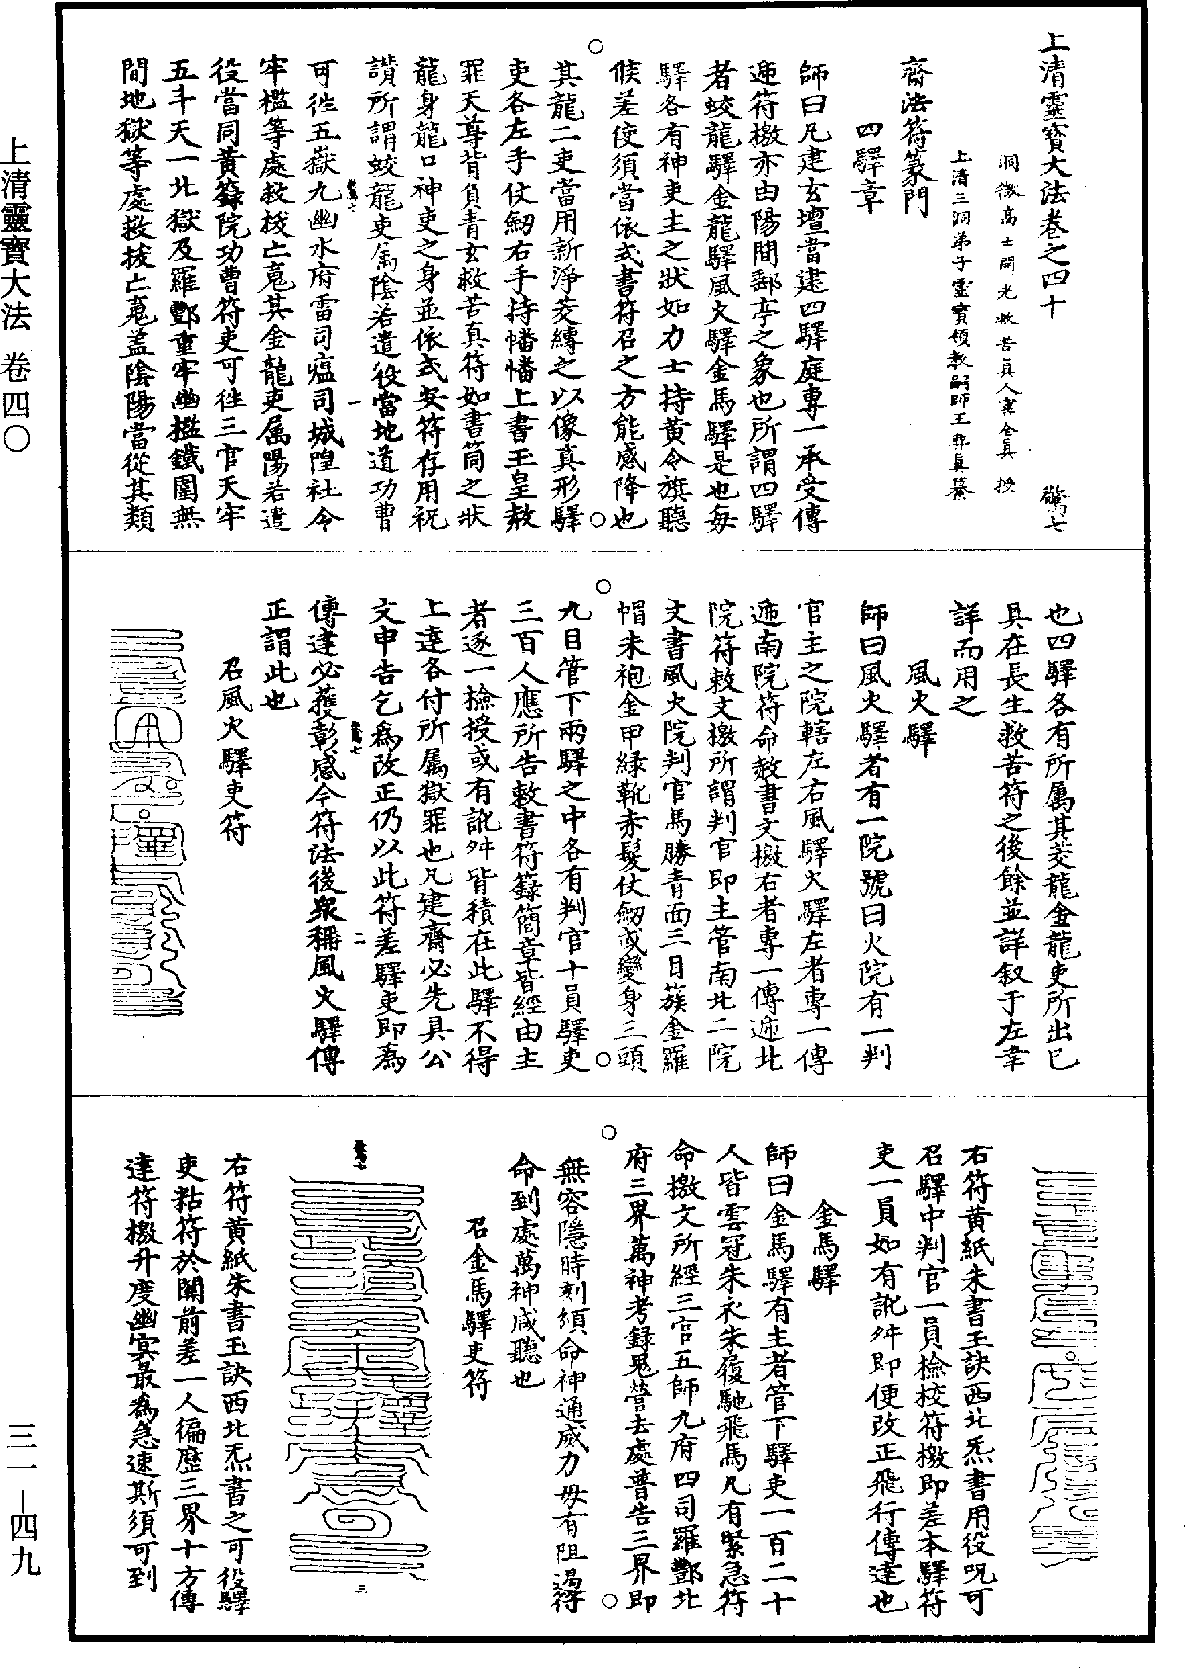 上清靈寶大法 卷四〇
三一—四九
上清靈寶大法卷之四十 驚七
洞微高士開光救苦真人甯全真 授
上清三洞弟子靈寶領教嗣師王契真纂
齋法符篆門
四驛章
師曰凡建玄壇當建四驛庭專一承受傳
遞符檄亦由陽間郵亭之象也所謂四驛
者蛟龍驛金龍驛風火驛金馬驛是也每
驛各有神吏主之狀如力士持黃令旗聽
候差使須當依式書符召之方能感降也
其龍二吏當用新淨茭縛之以像真形驛
吏各左手仗劒右手持幡幡上書玉皇赦
罪天尊背負青玄救苦真符如書筒之狀
龍身龍口神吏之身並依式安符存用祝
讚所謂蛟龍吏屬陰若遣役當地道功曹
可徃五嶽九幽水府雷司瘟司城隍社令
牢檻等處救拔亡䰟其金龍吏屬陽若遣
役當同黃籙院功曹符吏可徃三官天牢
五斗天一北獄及羅酆重牢幽檻鐵圍無
間地獄等處救拔亡䰟盖陰陽當從其類
也四驛各有所屬其茭龍金龍吏所出已
具在長生救苦符之後餘並詳叙于左幸
詳而用之
風火驛
師曰風火驛者有一院號曰火院有一判
官主之院轄左右風驛火驛左者專一傳
遞南院符命赦書文檄右者專一傳遞北
院符敕文檄所謂判官即主管南北二院
文書風火院判官馬勝青面三目簇金羅
帽朱袍金甲綠靴赤髮仗劒或變身三頭
九目管下兩驛之中各有判官十員驛吏
三百人應所告敕書符籙簡章皆經由主
者逐一檢授或有訛舛皆積在此驛不得
上達各付所屬獄罪也凡建齋必先具公
文申告乞為改正仍以此符差驛吏即為
傳達必獲彰感今符法後眾稱風火驛傳
正謂此也
召風火驛吏符
右符黃紙朱書玉訣西北炁書用役呪可
召驛中判官一員檢校符檄即差本驛符
吏一員如有訛舛即便改正飛行傳達也
金馬驛
師曰金馬驛有主者管下驛吏一百二十
人皆雲冠朱衣朱履馳飛馬凡有緊急符
命檄文所經三官五師九府四司羅酆北
府三界萬神考錄䰟營去處普告三界即
無容隱時刻須命神通威力毋有阻遏符
命到處萬神咸聽也
召金馬驛吏符
右符黃紙朱書玉訣西北炁書之可役驛
吏粘符於關前差一人徧歷三界十方傳
達符檄升度幽冥最為急速斯須可到